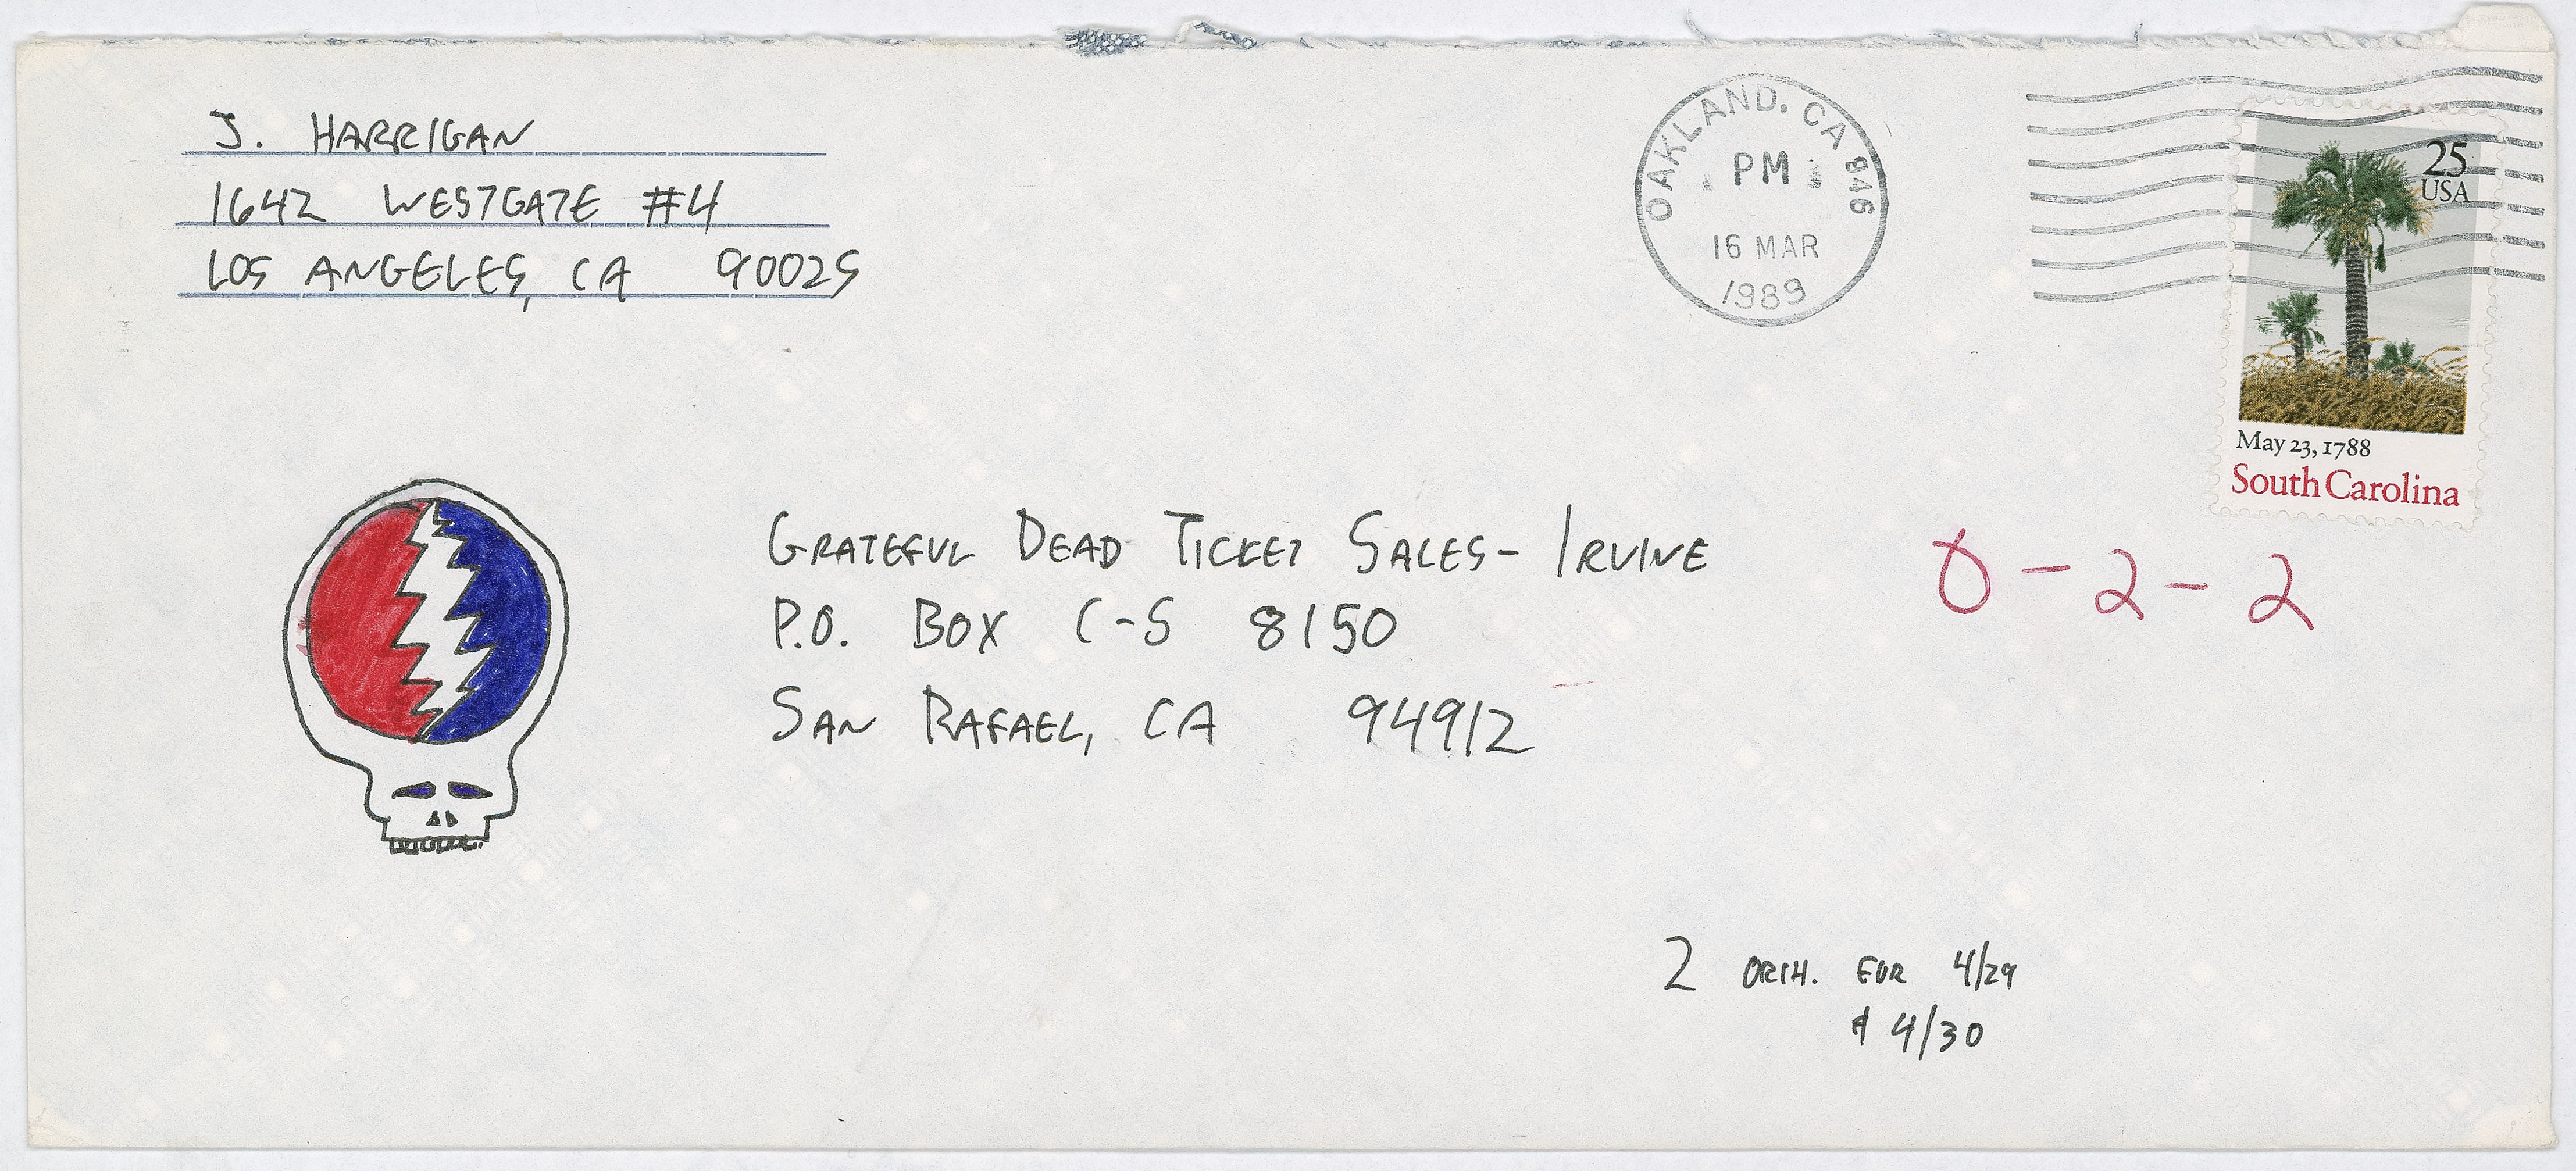 J. HARRIGAN
1642 WESTGATE #4
LOS ANGELES, CA 90025
OAKLAND, CA 946
PM
16 MAR
1989
25
USA
May 23, 1788
South Carolina
GRATEFUL DEAD TICKET SALES- IRVINE
P.O. BOX C-S 8150
SAN RAFAEL, CA 94912
0-2-2
2 ORCH. FOR 4/29
& 4/30